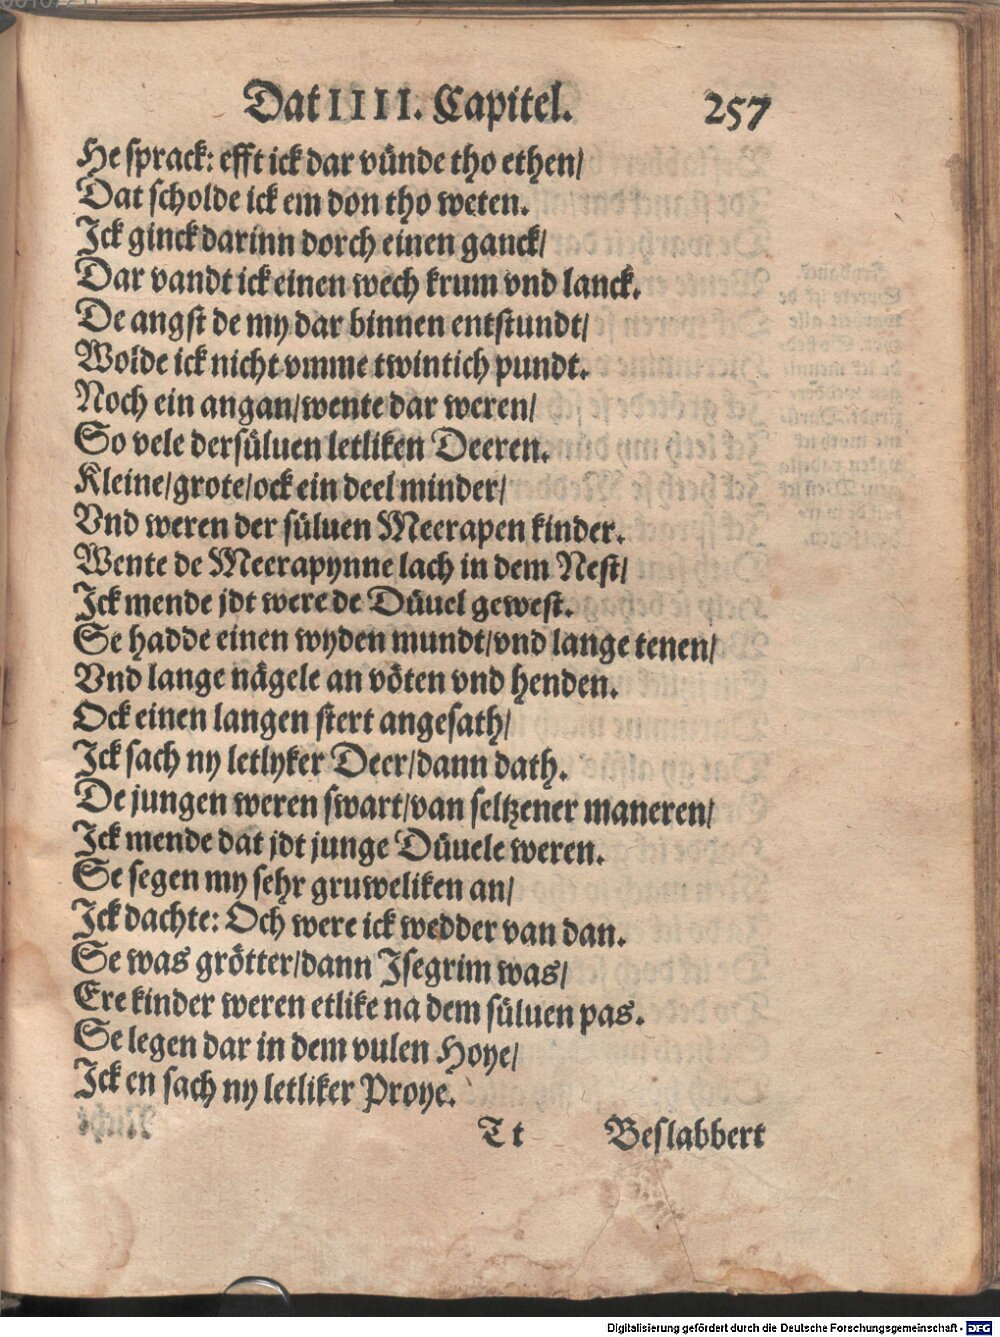 Dat IIII. Capitel. 257
He sprack: efft ick dar vünde tho ethen/
Dat scholde ick em don tho weten.
Ick ginck darinn dorch einen ganck/
Dar vandt ick einen wech krum vnd lanck.
De angst de my dar binnen entstundt/
Wolde ick nicht vmme twintich pundt.
Noch ein angan/wente dar weren/
So vele dersüluen letliken Deeren.
Kleine/grote/ock ein deel minder/
Vnd weren der süluen Meerapen kinder.
Wente de Meerapynne lach in dem Nest/
Ick mende jdt were de Düuel gewest.
Se hadde einen wyden mundt/vnd lange tenen/
Vnd lange nägele an vöten vnd henden.
Ock einen langen stert angesath/
Ick sach ny letlyker Deer/dann dath.
De jungen weren swart/van seltzener maneren/
Ick mende dat jdt junge Düuele weren.
Se segen my sehr gruweliken an/
Ick dachte: Och were ick wedder van dan.
Se was grötter/dann Isegrim was/
Ere kinder weren etlike na dem süluen pas.
Se legen dar in dem vulen Hoye/
Ick en sach ny letliker Proye.
Tt Beslabbert
Digitalisierung gefördert durch die Deutsche Forschungsgemeinschaft - DFG